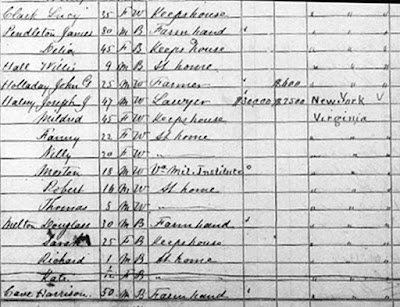 Clark Lucy 35 F W Keeps house " " "
Pendleton James 80 M B Farm hand " " " "
Delia 45 F B Keeps House " " "
Hall Willis 9 M B At home " " "
Holladay John G 25 M W Farmer " $600 " " "
Halsey Joseph J 47 M W Lawyer $30,000 $7500 New York V
Mildred 45 F W Keeps house Virginia
Fanny 22 F W At home " " "
Nelly 20 F W " " " "
Morton 18 M W Va Mil. Institute " " " "
Robert 16 M W At home " " "
Thomas 5 M W " " " "
Melton Douglass 30 M B Farm hand " " " "
Sarah 25 F B Keeps house " " " "
Richard 1 M B At home " " "
Kate F B " " " "
Cave Harrison 50 M B Farm hand " " " "